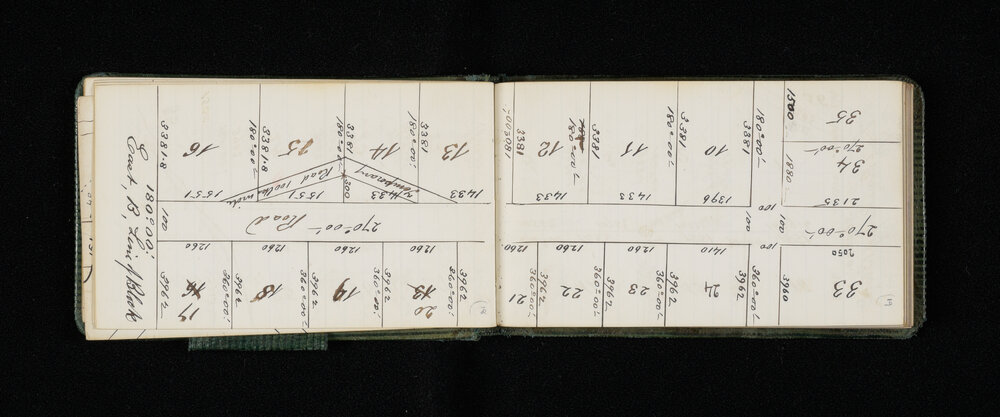 East, B, Line of Block
180°00'
3381.8
16
3381.8
180°00'
15
3381
180°00'
14
3381
180°00'
13
1551
1551
Temporary
Road 100 lks wide
300
1433
1433
100
Road
270°00'
1260
1260
1260
1260
3962
17
3962
360°00'
18
3962
360°00'
19
3962
360°00'
20
3962
360°00'
3381
180°00'
12
180°00'
3381
11
3381
180°00'
10
3381
180°00'
1433
1433
1396
1500
35
270°00'
34
1880
2135
100
100
100
270°00'
2050
1260
1260
1260
1410
21
3962
360°00'
22
3962
360°00'
23
3962
360°00'
24
3962
360°00'
3960
33